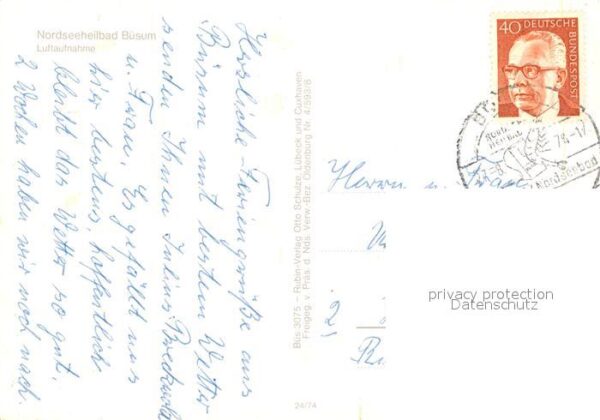 Nordseeheilbad Büsum
Luftaufnahme
Herzliche Feriengrüße aus
Büsum mit bestem Wetter
senden Ihnen Julius
u. Frau. Es gefällt uns
hier bestens, hoffentlich
bleibt das Wetter so gut.
2 Wochen haben wir noch nach.
Büs 3075 – Rubin-Verlag Otto Schulze, Lübeck und Cuxhaven
Freigeg. v. Präs. d. Nds. Verw.-Bez. Oldenburg Nr. 4/593/6
24/74
40 DEUTSCHE
BUNDESPOST
Nordseebad
Herrn u. Frau
2
privacy protection
Datenschutz